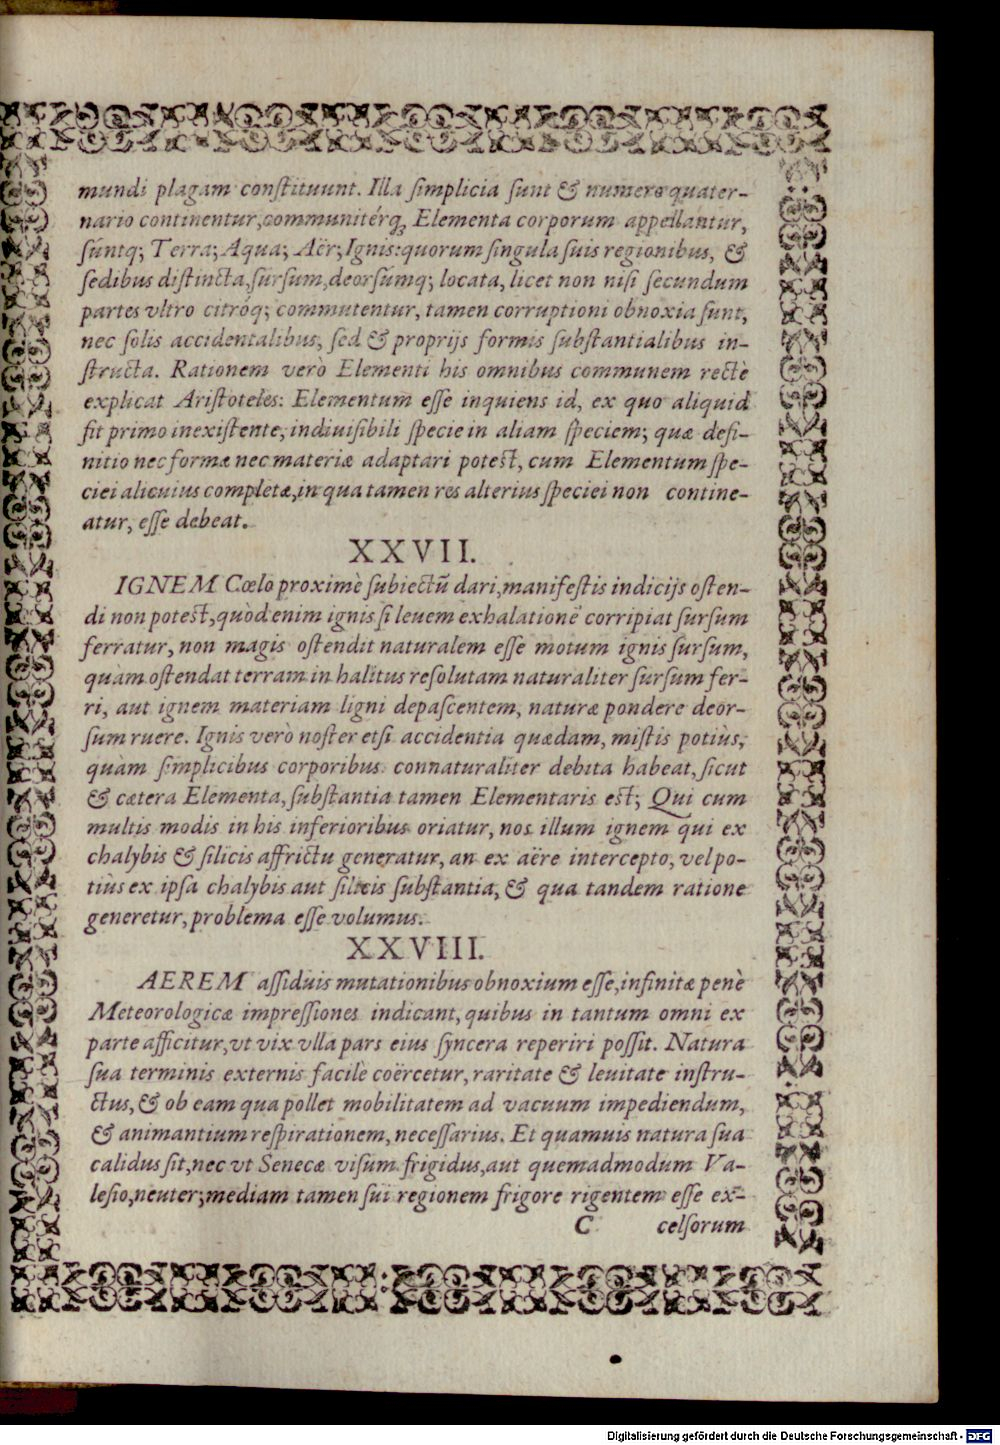 mundi plagam conſtituunt. Illa ſimplicia ſunt & numero quater-
nario continentur, communitérq; Elementa corporum appellantur,
ſúntq; Terra; Aqua; Aër; Ignis: quorum ſingula ſuis regionibus, &
ſedibus diſtincta, ſurſum, deorſúmq; locata, licet non niſi ſecundum
partes vltro citróq; commutentur, tamen corruptioni obnoxia ſunt,
nec ſolis accidentalibus, ſed & proprijs formis ſubſtantialibus in-
ſtructa. Rationem verò Elementi his omnibus communem rectè
explicat Ariſtoteles: Elementum eſſe inquiens id, ex quo aliquid
fit primo inexiſtente, indiuiſibili ſpecie in aliam ſpeciem; quæ defi-
nitio nec formæ nec materiæ adaptari poteſt, cum Elementum ſpe-
ciei alicuius completæ, in qua tamen res alterius ſpeciei non contine-
atur, eſſe debeat.
XXVII.
IGNEM Cœlo proximè ſubiectũ dari, manifeſtis indicijs oſten-
di non poteſt, quòd enim ignis ſi leuem exhalationẽ corripiat ſurſum
ferratur, non magis oſtendit naturalem eſſe motum ignis ſurſum,
quàm oſtendat terram in halitus reſolutam naturaliter ſurſum fer-
ri, aut ignem materiam ligni depaſcentem, naturæ pondere deor-
ſum ruere. Ignis verò noſter etſi accidentia quædam, miſtis potiùs,
quàm ſimplicibus corporibus connaturaliter debita habeat, ſicut
& cætera Elementa, ſubſtantia tamen Elementaris eſt; Qui cum
multis modis in his inferioribus oriatur, nos illum ignem qui ex
chalybis & ſilicis affrictu generatur, an ex aëre intercepto, vel po-
tiùs ex ipſa chalybis aut ſilicis ſubſtantia, & qua tandem ratione
generetur, problema eſſe volumus.
XXVIII.
AEREM aſſiduis mutationibus obnoxium eſſe, infinitæ penè
Meteorologicæ impreſſiones indicant, quibus in tantum omni ex
parte afficitur, vt vix vlla pars eius ſyncera reperiri poſſit. Natura
ſua terminis externis facilè coërcetur, raritate & leuitate inſtru-
ctus, & ob eam qua pollet mobilitatem ad vacuum impediendum,
& animantium reſpirationem, neceſſarius. Et quamuis natura ſua
calidus ſit, nec vt Senecæ viſum frigidus, aut quemadmodum Va-
leſio, neuter; mediam tamen ſui regionem frigore rigentem eſſe ex-
C celſorum
Digitalisierung gefördert durch die Deutsche Forschungsgemeinschaft - DFG